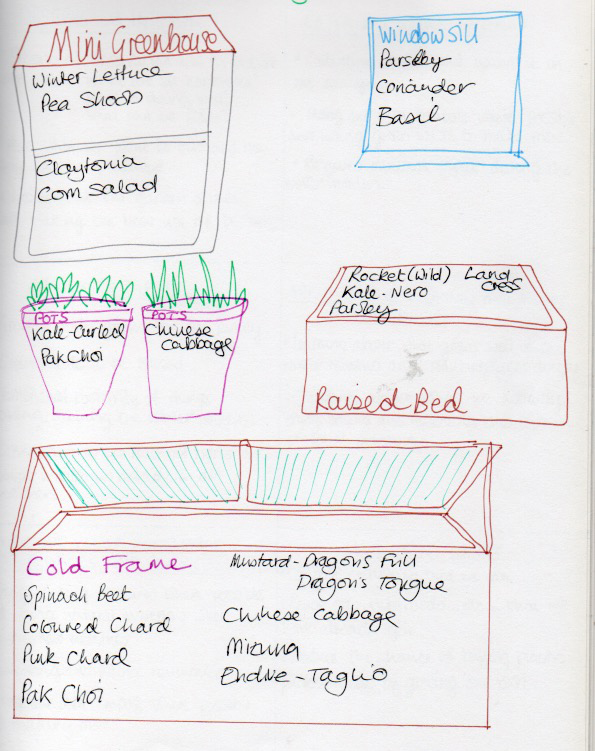 Mini Greenhouse
Winter Lettuce
Pea Shoots
Claytonia
Corn Salad
Windowsill
Parsley
Coriander
Basil
POTS
Kale-Curled
Pak Choi
POTS
Chinese
Cabbage
Rocket (Wild) Land
Cress
Kale-Nero
Parsley
Raised Bed
Cold Frame
Spinach Beet
Coloured Chard
Pink Chard
Pak Choi
Mustard-Dragons Frill
Dragon's Tongue
Chinese Cabbage
Mizuna
Endive-Taglio